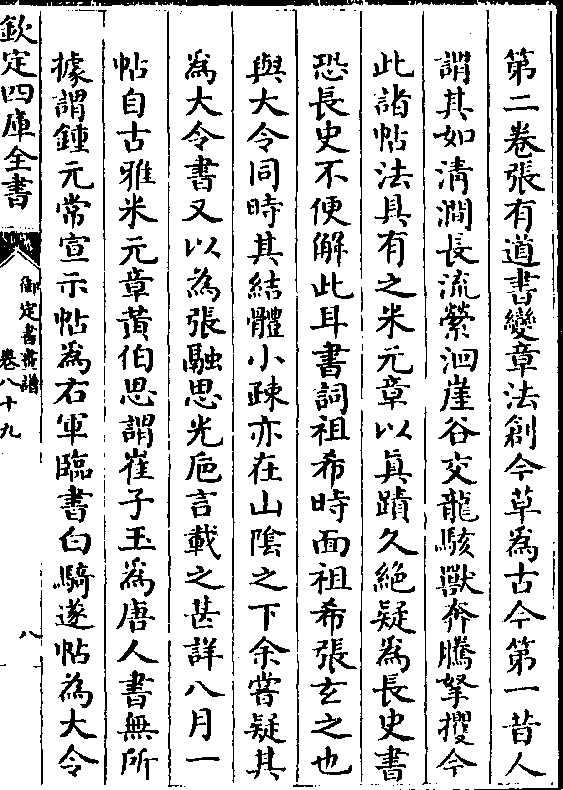 第二卷張有道書變章法創今草為古今第一昔人
謂其如清澗長流縈洄崖谷交龍駭獸奔騰拏攫今
此諸帖法具有之米元章以真蹟久絶疑為長史書
恐長史不便解此耳書詞祖希時面祖希張玄之也
與大令同時其結體小疎亦在山隂之下余嘗疑其
為大令書又以為張融思光巵言載之甚詳八月一
帖自古雅米元章黄伯思謂崔子玉為唐人書無所
據謂鍾元常宣示帖為右軍臨書白騎遂帖為大令
欽定四庫全書
御定書畫譜
卷八十九
八